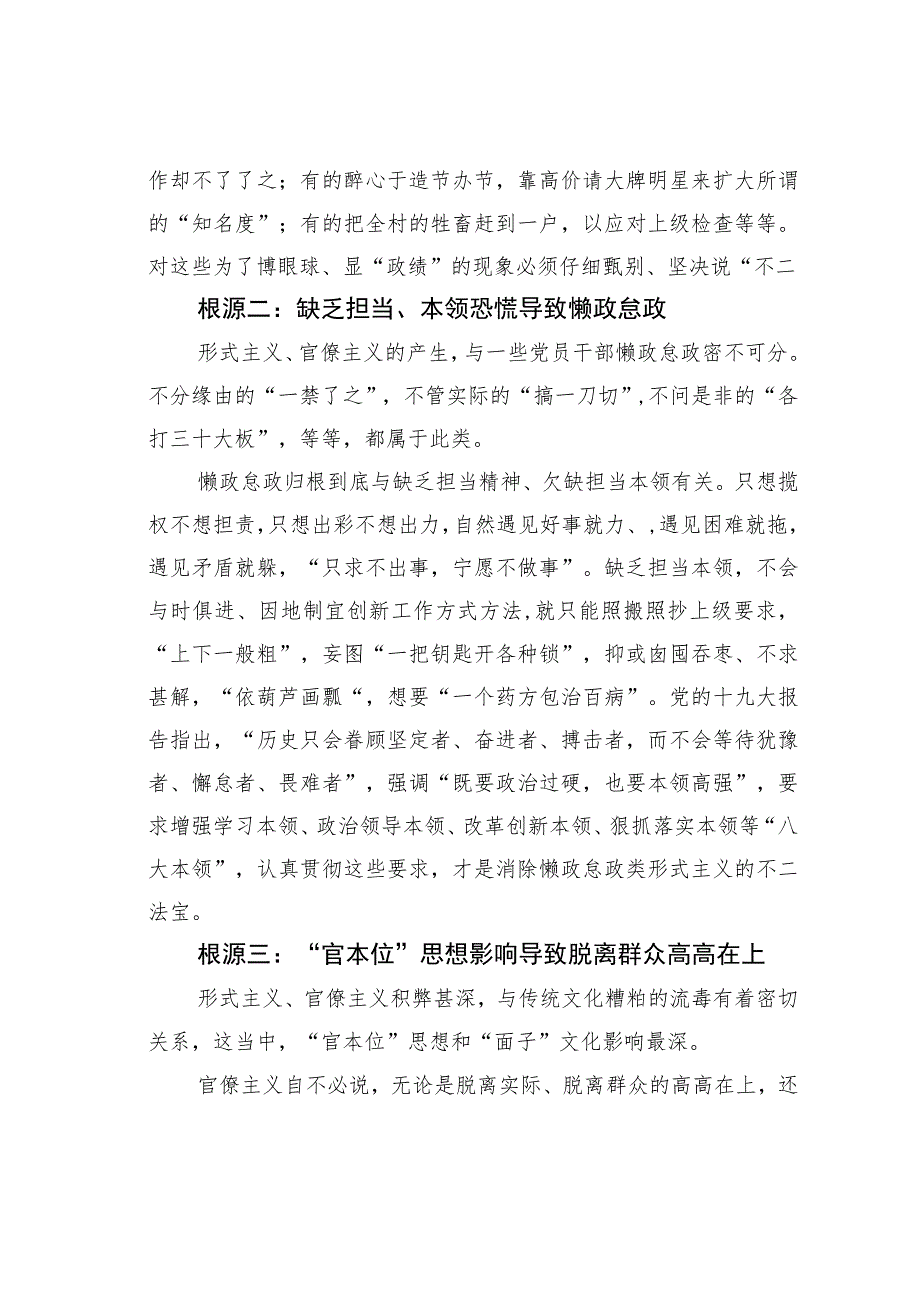 作却不了了之；有的醉心于造节办节，靠高价请大牌明星来扩大所谓
的“知名度”；有的把全村的牲畜赶到一户，以应对上级检查等等。
对这些为了博眼球、显“政绩”的现象必须仔细甄别、坚决说“不二
根源二：缺乏担当、本领恐慌导致懒政怠政
形式主义、官僚主义的产生，与一些党员干部懒政怠政密不可分。
不分缘由的“一禁了之”，不管实际的“搞一刀切”,不问是非的“各
打三十大板”，等等，都属于此类。
懒政怠政归根到底与缺乏担当精神、欠缺担当本领有关。只想揽
权不想担责，只想出彩不想出力，自然遇见好事就力、,遇见困难就拖，
遇见矛盾就躲，“只求不出事，宁愿不做事”。缺乏担当本领，不会
与时俱进、因地制宜创新工作方式方法,就只能照搬照抄上级要求，
“上下一般粗”，妄图“一把钥匙开各种锁”，抑或囱囤吞枣、不求
甚解，“依葫芦画瓢“，想要“一个药方包治百病”。党的十九大报
告指出，“历史只会眷顾坚定者、奋进者、搏击者，而不会等待犹豫
者、懈怠者、畏难者”，强调“既要政治过硬，也要本领高强”，要
求增强学习本领、政治领导本领、改革创新本领、狠抓落实本领等“八
大本领”，认真贯彻这些要求，才是消除懒政怠政类形式主义的不二
法宝。
根源三：“官本位”思想影响导致脱离群众高高在上
形式主义、官僚主义积弊甚深，与传统文化糟粕的流毒有着密切
关系，这当中，“官本位”思想和“面子”文化影响最深。
官僚主义自不必说，无论是脱离实际、脱离群众的高高在上，还